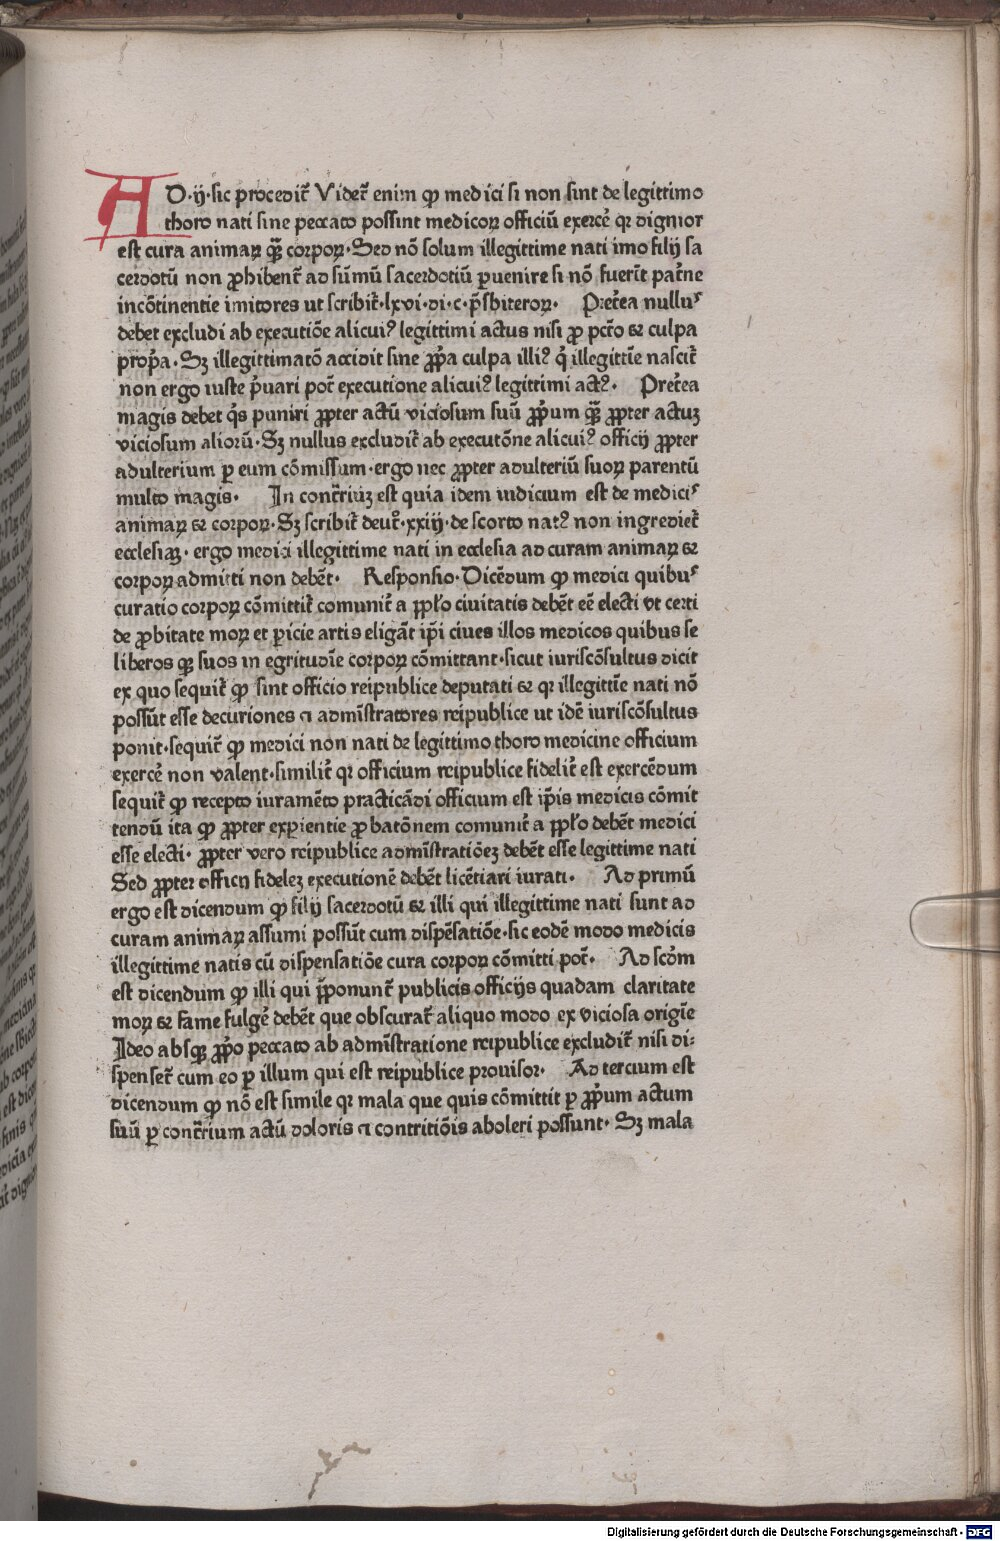 AD·ij·sic procedit̄ Videt̄ enim ꝙ medici si non sint de legittimo
thoro nati sine peccato possint medicoꝝ officiū exercē qꝛ dignior
est cura animaꝝ qꝫ̄ corpoꝝ·Sed nō solum illegittime nati imo filij sa
cerdotū non ꝓhibent̄ ad sūmū sacerdotiū ꝑuenire si nō fuerīt pat̄ne
incōtinentie imitores ut scribit̄·lxvi·di·c·p̄sbiteroꝝ· Pret̄ea nullus
debet excludi ab executiōe alicuiꝰ legittimi actus nisi ꝓ pctō ⁊ culpa
prop̄a·Sꝫ illegittimatō accidit sine ꝓp̄a culpa illiꝰ q̄ illegittīe nascit̄
non ergo iuste p̄uari pot̄ executione alicuiꝰ legittimi actꝰ· Pret̄ea
magis debet q̄s puniri ꝓpter actū viciosum suū ꝓp̄um qꝫ̄ ꝓpter actuꝫ
viciosum aliorū·Sꝫ nullus excludit̄ ab executōne alicuiꝰ officij ꝓpter
adulterium ꝑ eum cōmissum·ergo nec ꝓpter adulteriū suoꝝ parentū
multo magis· In cont̄riuꝫ est quia idem iudicium est de medicis
animaꝝ ⁊ corpoꝝ·Sꝫ scribit̄ deut̄·xxiij·de scorto natꝰ non ingrediet̄
ecclesiaꝫ· ergo medici illegittime nati in ecclesia ad curam animaꝝ ⁊
corpoꝝ admitti non debēt· Responsio·Dicēdum ꝙ medici quibus
curatio corpoꝝ cōmittit̄ comunit̄ a ꝓpl̄o ciuitatis debēt eē electi vt certi
de ꝓbitate moꝝ et ꝑicie artis eligāt ip̄i ciues illos medicos quibus se
liberos qꝫ suos in egritudīe corpoꝝ cōmittant·sicut iuriscōsultus dicit
ex quo sequit̄ ꝙ sint officio reipublice deputati ⁊ qꝛ illegittīe nati nō
possūt esse decuriones ⁊ admīstratores reipublice ut idē iuriscōsultus
ponit·sequit̄ ꝙ medici non nati de legittimo thoro medicine officium
exercē non valent·similit̄ qꝛ officium reipublice fidelit̄ est exercēdum
sequit̄ ꝙ recepto iuramēto practicādi officium est ip̄is medicis cōmit
tendū ita ꝙ ꝓpter exꝑientie ꝓbatōnem comunit̄ a ꝓpl̄o debēt medici
esse electi· ꝓpter vero reipublice admīstratiōeꝫ debēt esse legittime nati
Sed ꝓpter officij fideleꝫ executionē debēt licētiari iurati· Ad primū
ergo est dicendum ꝙ filij sacerdotū ⁊ illi qui illegittime nati sunt ad
curam animaꝝ assumi possūt cum dispēsatiōe·sic eodē modo medicis
illegittime natis cū dispensatiōe cura corpoꝝ cōmitti pot̄· Ad scd̄m
est dicendum ꝙ illi qui p̄ponunt̄ publicis officijs quadam claritate
moꝝ ⁊ fame fulgē debēt que obscurat̄ aliquo modo ex viciosa origīe
Ideo absqꝫ ꝓp̄o peccato ab admīstratione reipublice excludit̄ nisi di:
spenset̄ cum eo ꝑ illum qui est reipublice prouisor· Ad tercium est
dicendum ꝙ nō est simile qꝛ mala que quis cōmittit ꝑ ꝓp̄um actum
suū ꝑ cont̄rium actū doloris ⁊ contritiōis aboleri possunt· Sꝫ mala
Digitalisierung gefördert durch die Deutsche Forschungsgemeinschaft - DFG